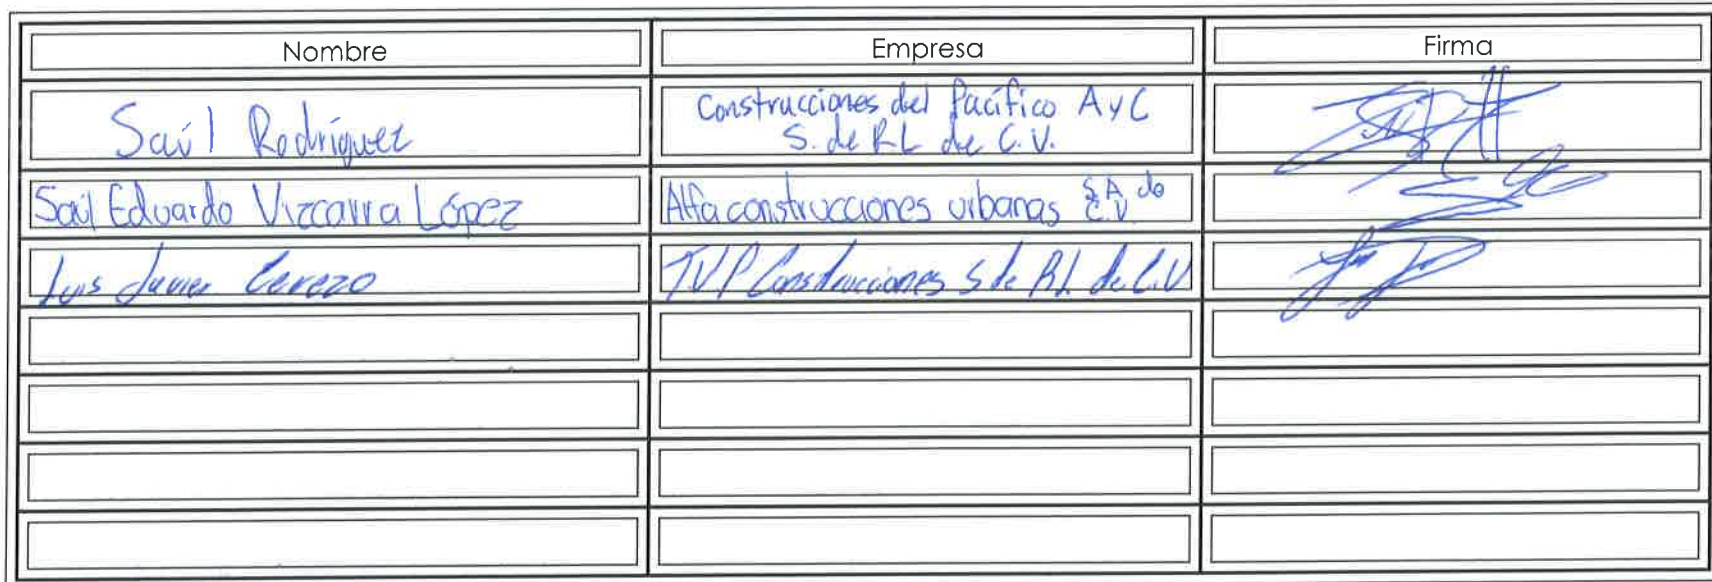 Nombre Empresa Firma
Saúl Rodríguez Construcciones del Pacífico A y C
S. de RL de C.V.
Saúl Eduardo Vizcarra López Alfa construcciones urbanas S.A. de C.V.
Luis Javier Cerezo TVP Construcciones S de RL de C.V